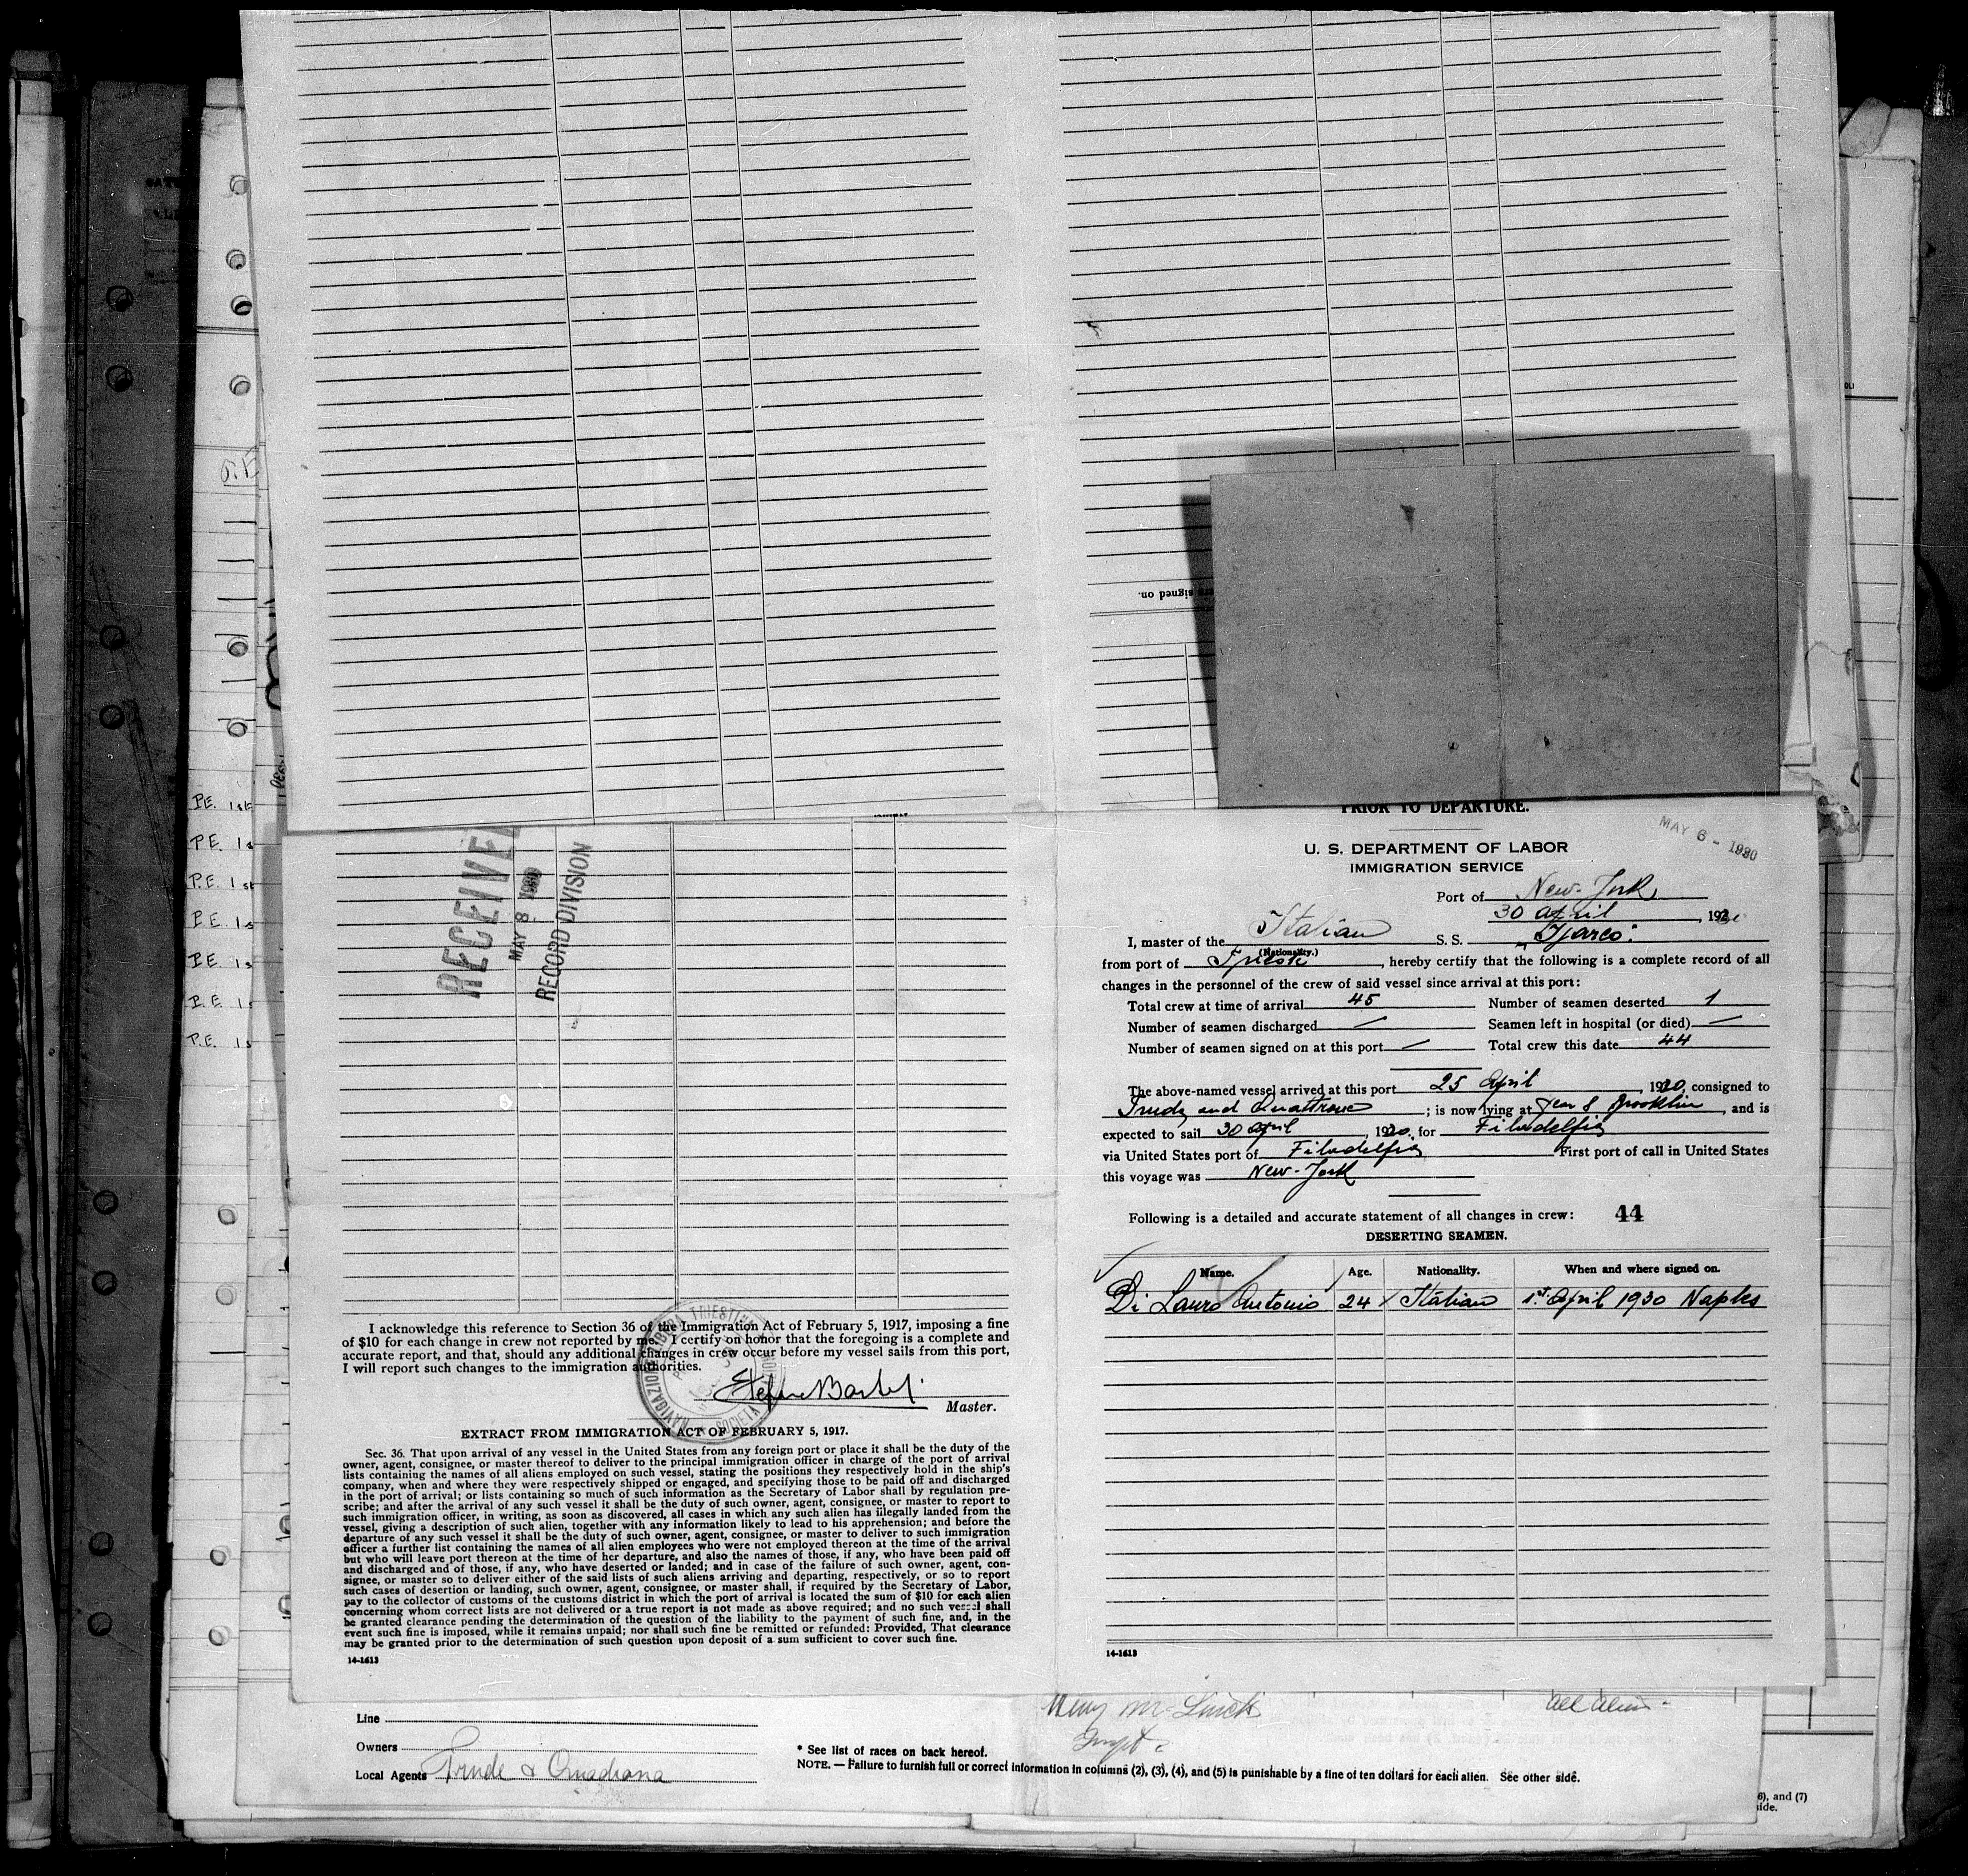 PRIOR TO DEPARTURE.
MAY 8 - 1930
U. S. DEPARTMENT OF LABOR
IMMIGRATION SERVICE
Port of New-York
30 April, 1930
I, master of the Italian S. S.
(Nationality.)
from port of Trieste, hereby certify that the following is a complete record of all
changes in the personnel of the crew of said vessel since arrival at this port:
Total crew at time of arrival 45 Number of seamen deserted 1
Number of seamen discharged — Seamen left in hospital (or died) —
Number of seamen signed on at this port — Total crew this date 44
The above-named vessel arrived at this port 25 April, 1930, consigned to
and; is now lying at 8 Brooklin, and is
expected to sail 30 April, 1930, for Filadelfia
via United States port of Filadelfia First port of call in United States
this voyage was New-York
Following is a detailed and accurate statement of all changes in crew: 44
DESERTING SEAMEN.
Name. Age. Nationality. When and where signed on.
Di Lauro Antonio 24 Italian 1st April 1930 Naples
14-1613
signed on.
RECEIVED
MAY 8 1930
RECORD DIVISION
I acknowledge this reference to Section 36 of the Immigration Act of February 5, 1917, imposing a fine
of $10 for each change in crew not reported by me. I certify on honor that the foregoing is a complete and
accurate report, and that, should any additional changes in crew occur before my vessel sails from this port,
I will report such changes to the immigration authorities.
Master.
EXTRACT FROM IMMIGRATION ACT OF FEBRUARY 5, 1917.
Sec. 36. That upon arrival of any vessel in the United States from any foreign port or place it shall be the duty of the
owner, agent, consignee, or master thereof to deliver to the principal immigration officer in charge of the port of arrival
lists containing the names of all aliens employed on such vessel, stating the positions they respectively hold in the ship's
company, when and where they were respectively shipped or engaged, and specifying those to be paid off and discharged
in the port of arrival; or lists containing so much of such information as the Secretary of Labor shall by regulation pre-
scribe; and after the arrival of any such vessel it shall be the duty of such owner, agent, consignee, or master to report to
such immigration officer, in writing, as soon as discovered, all cases in which any such alien has illegally landed from the
vessel, giving a description of such alien, together with any information likely to lead to his apprehension; and before the
departure of any such vessel it shall be the duty of such owner, agent, consignee, or master to deliver to such immigration
officer a further list containing the names of all alien employees who were not employed thereon at the time of the arrival
but who will leave port thereon at the time of her departure, and also the names of those, if any, who have been paid off
and discharged and of those, if any, who have deserted or landed; and in case of the failure of such owner, agent, con-
signee, or master so to deliver either of the said lists of such aliens arriving and departing, respectively, or so to report
such cases of desertion or landing, such owner, agent, consignee, or master shall, if required by the Secretary of Labor,
pay to the collector of customs of the customs district in which the port of arrival is located the sum of $10 for each alien
concerning whom correct lists are not delivered or a true report is not made as above required; and no such vessel shall
be granted clearance pending the determination of the question of the liability to the payment of such fine, and, in the
event such fine is imposed, while it remains unpaid; nor shall such fine be remitted or refunded: Provided, That clearance
may be granted prior to the determination of such question upon deposit of a sum sufficient to cover such fine.
14-1613
Line
Owners
Local Agents
* See list of races on back hereof.
NOTE. — Failure to furnish full or correct information in columns (2), (3), (4), and (5) is punishable by a fine of ten dollars for each alien. See other side.
6), and (7)
side.
P.E. 1st
P.E. 1s
P.E. 1st
P.E. 1s
P.E. 1s
P.E. 1s
P.E. 1s